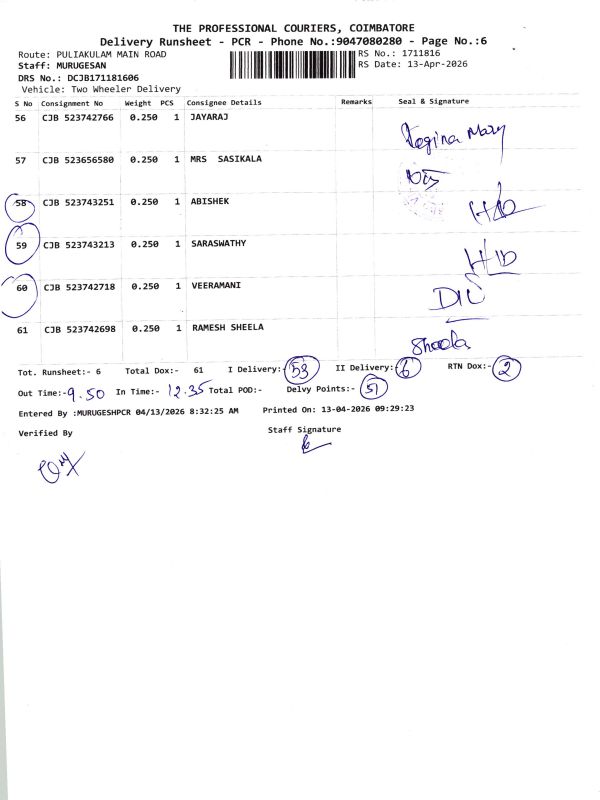 THE PROFESSIONAL COURIERS, COIMBATORE
Delivery Runsheet - PCR - Phone No.:9047080280 - Page No.:6
Route: PULIAKULAM MAIN ROAD RS No.: 1711816
Staff: MURUGESAN RS Date: 13-Apr-2026
DRS No.: DCJB171181606
Vehicle: Two Wheeler Delivery
S No Consignment No Weight PCS Consignee Details Remarks Seal & Signature
56 CJB 523742766 0.250 1 JAYARAJ Regina Mary
57 CJB 523656580 0.250 1 MRS SASIKALA
58 CJB 523743251 0.250 1 ABISHEK H/D
59 CJB 523743213 0.250 1 SARASWATHY H/D
60 CJB 523742718 0.250 1 VEERAMANI D/L
61 CJB 523742698 0.250 1 RAMESH SHEELA Sheela
Tot. Runsheet:- 6 Total Dox:- 61 I Delivery:- 53 II Delivery:- 6 RTN Dox:- 2
Out Time:- 9.50 In Time:- 12.35 Total POD:- Delvy Points:- 51
Entered By :MURUGESHPCR 04/13/2026 8:32:25 AM Printed On: 13-04-2026 09:29:23
Verified By Staff Signature